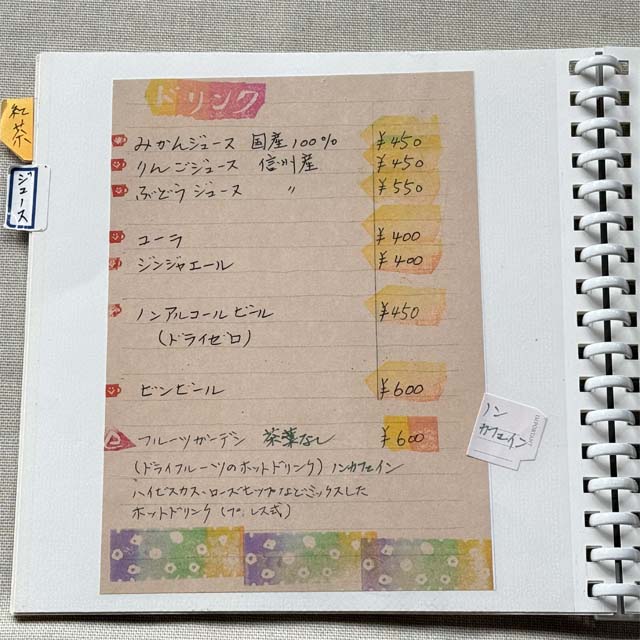 ドリンク
みかんジュース 国産100% ¥450
りんごジュース 信州産 ¥450
ぶどうジュース 〃 ¥550
コーラ ¥400
ジンジャエール ¥400
ノンアルコールビール ¥450
(ドライゼロ)
ビンビール ¥600
フルーツガーデン 茶葉なし ¥600
(ドライフルーツのホットドリンク) ノンカフェイン
ハイビスカス・ローズヒップなどミックスした
ホットドリンク(プレス式)
紅茶
ジュース
ノン
カフェイン